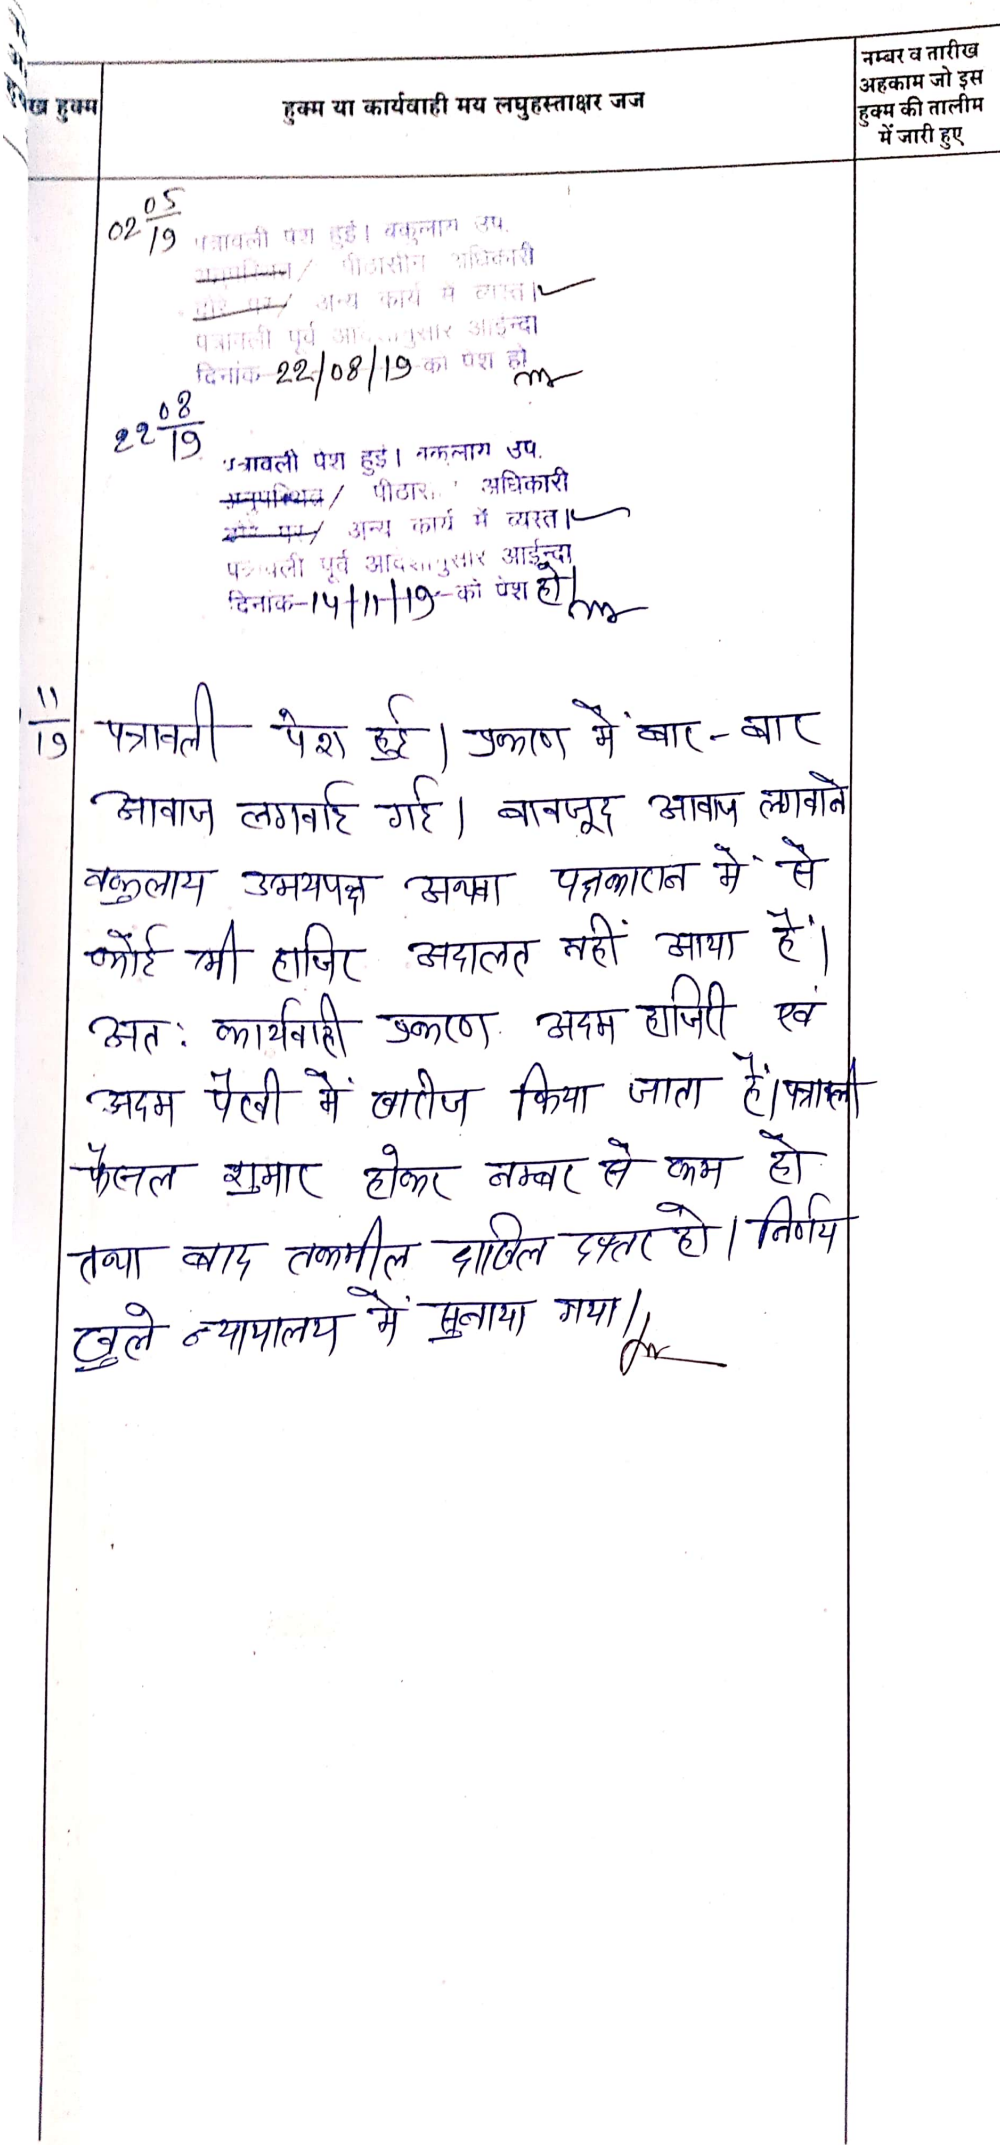 नम्बर व तारीख
अहकाम जो इस
हुक्म की तालीम
में जारी हुए
हुक्म
हुक्म या कार्यवाही मय लघुहस्ताक्षर जज
02 05/19
पत्रावली पेश हुई। वकुलाय उप.
अनुपस्थित / पीठासीन अधिकारी
दौरे पर / अन्य कार्य में व्यस्त।
पत्रावली पूर्व आदेशानुसार आईन्दा
दिनांक 22/08/19 को पेश हो
22 08/19
पत्रावली पेश हुई। वकुलाय उप.
अनुपस्थित / अधिकारी
दौरे पर / अन्य कार्य में व्यस्त।
पत्रावली पूर्व आदेशानुसार आईन्दा
दिनांक-14/11/19 को पेश हो।
11/19
पत्रावली पेश हुई। प्रकरण में बार-बार
आवाज लगवाई गई। बावजूद आवाज लगवाने
वकुलाय उभयपक्ष अथवा पक्षकारान में से
कोई भी हाजिर अदालत नहीं आया है।
अतः कार्यवाही प्रकरण अदम हाजिरी एवं
अदम पैरवी में खारीज किया जाता है। पत्रावली
फैसल शुमार होकर नम्बर से कम हो
तथा बाद तकमील दाखिल दफ्तर हो। निर्णय
खुले न्यायालय में सुनाया गया।